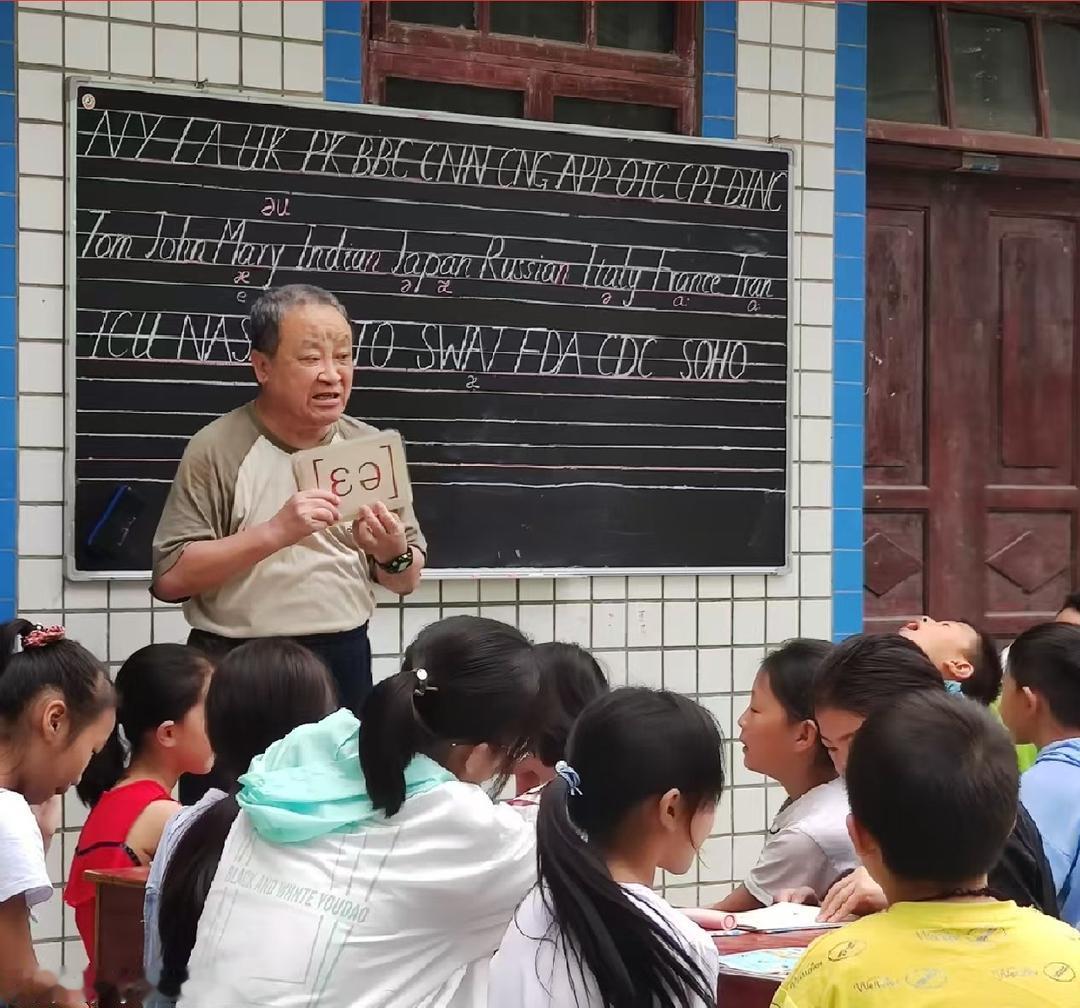 NY LA UK PK BBC CNN CNG APP OTC CPI DINC
əu
Tom John Mary Indian Japan Russian Italy France Iran
æ ə æ ə ɑ: ɑ:
e
ICU NAS TO SWAT FDA CDC SOHO
æ
[ɛə]
BLACK AND WHMTE YOUDAO